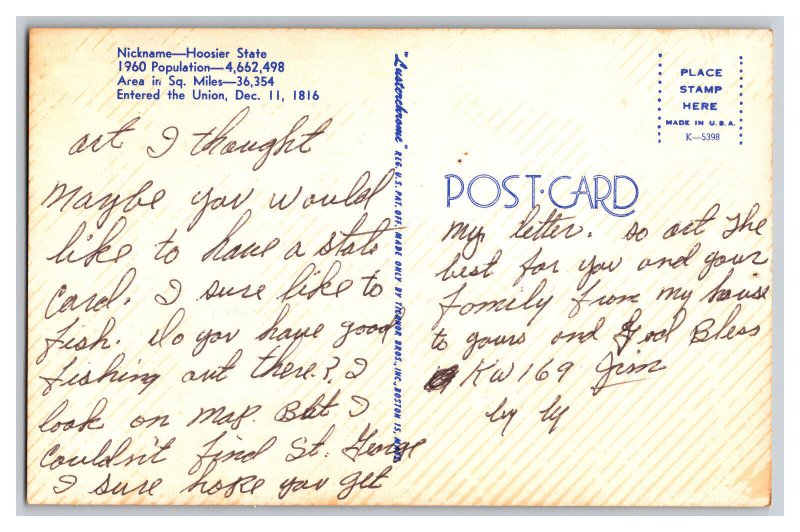 Nickname—Hoosier State
1960 Population—4,662,498
Area in Sq. Miles—36,354
Entered the Union, Dec. 11, 1816
art I thought
maybe you would
like to have a state
Card. I sure like to
fish. do you have good
fishing out there? I
look on map. But I
couldn't find St. George
I sure hope you get
"Lusterchrome" REG. U.S. PAT. OFF. MADE ONLY BY TICHNOR BROS., INC., BOSTON 15, MASS.
PLACE
STAMP
HERE
MADE IN U.S.A.
K—5398
POST·CARD
my letter. so art The
best for you and your
family from my house
to yours and God Bless
KW 169 Jim
by by